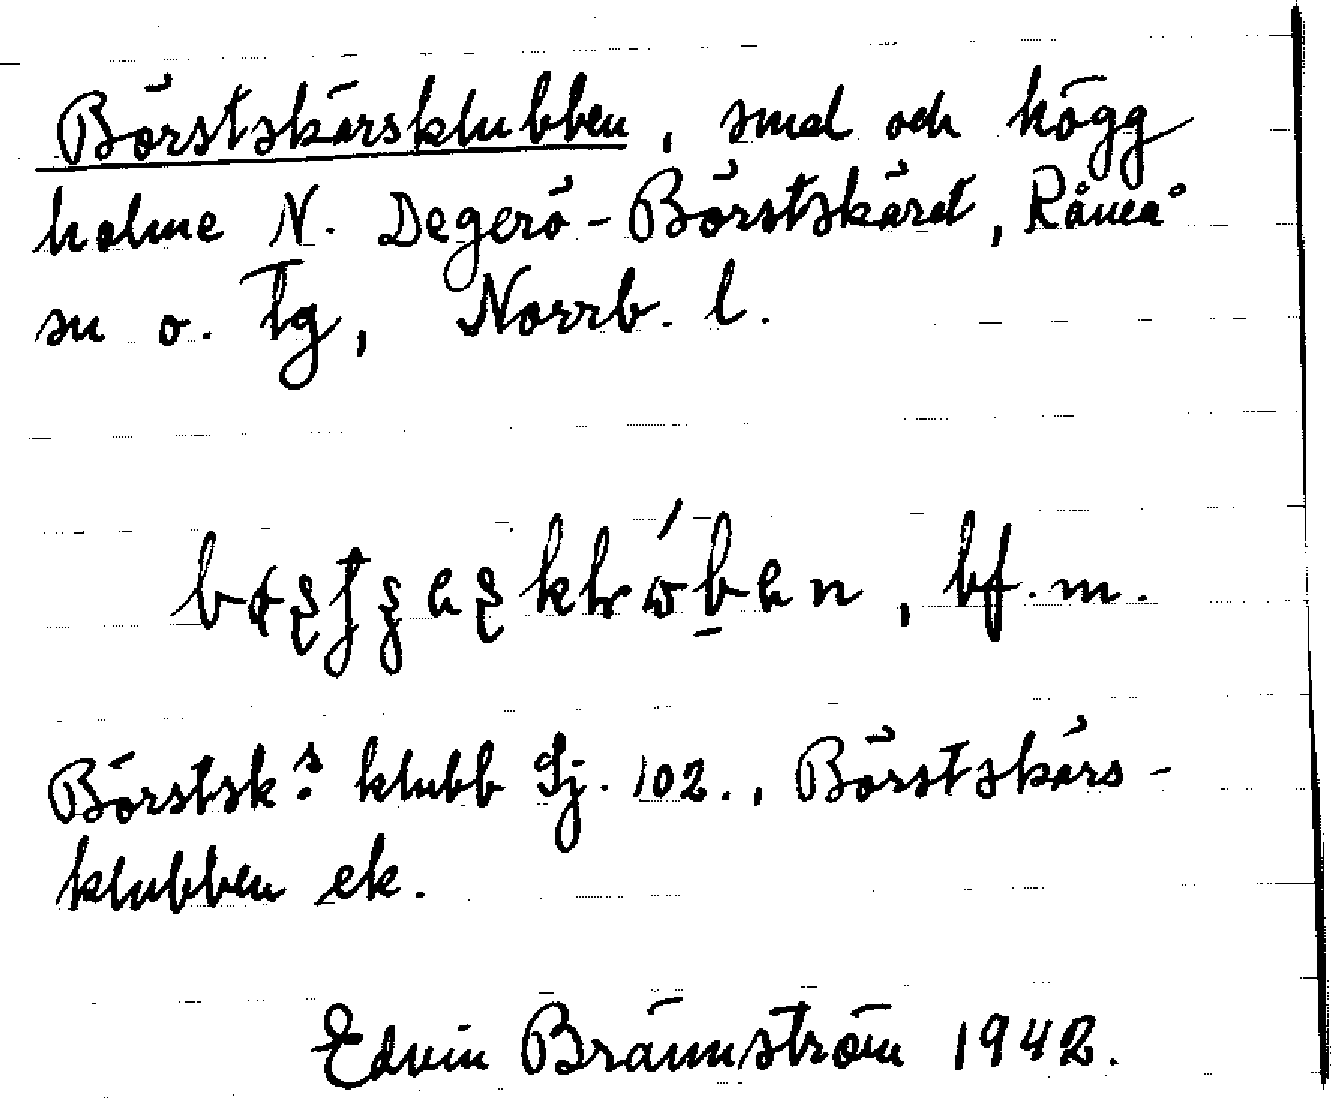 Börstskärsklubben, smal och högg
holme N. Degerö-Börstskäret, Råneå
sn o. tg, Norrb. l.
bf. m.
Börstsk:s klubb Sj. 102., Börstskärs-
klubben ek.
Edvin Brännström 1942.